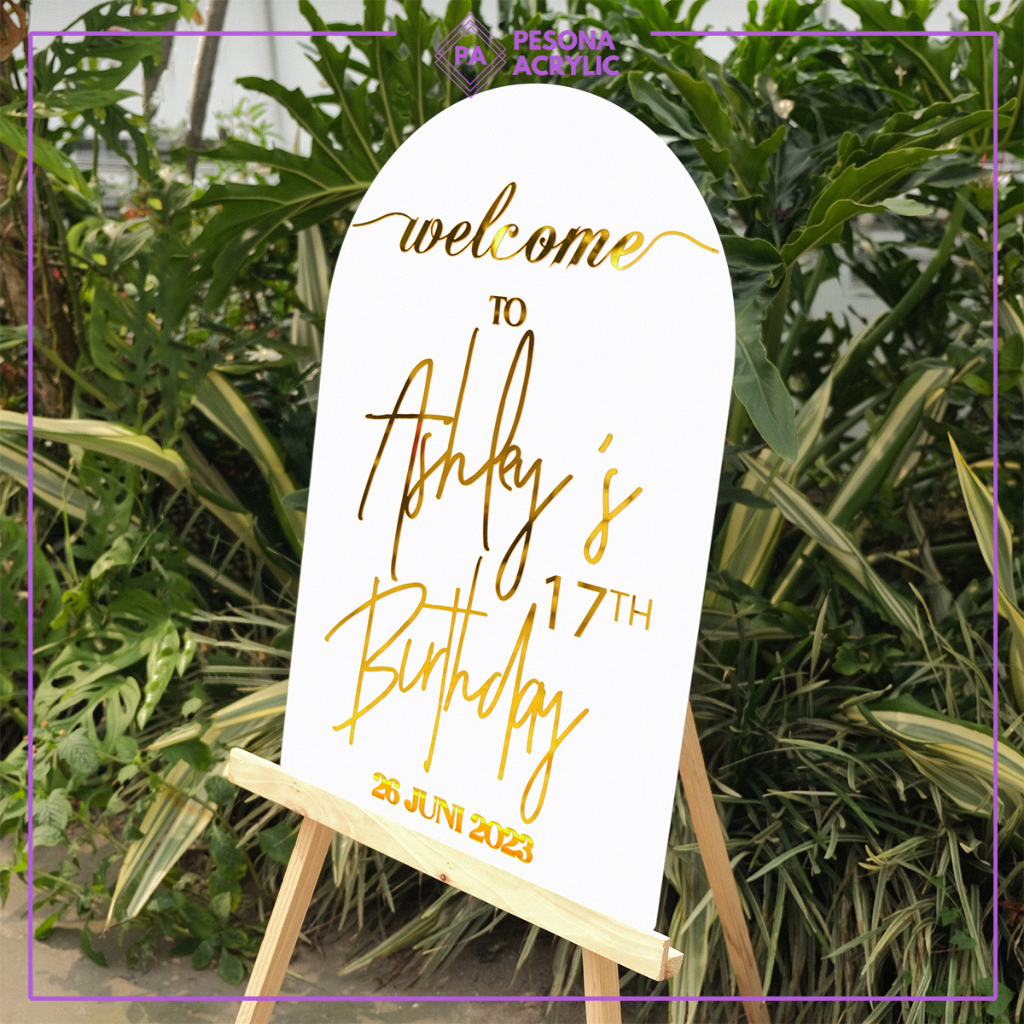 PA
PESONA
ACRYLIC
welcome
TO
Ashley's
17TH
Birthday
26 JUNI 2023